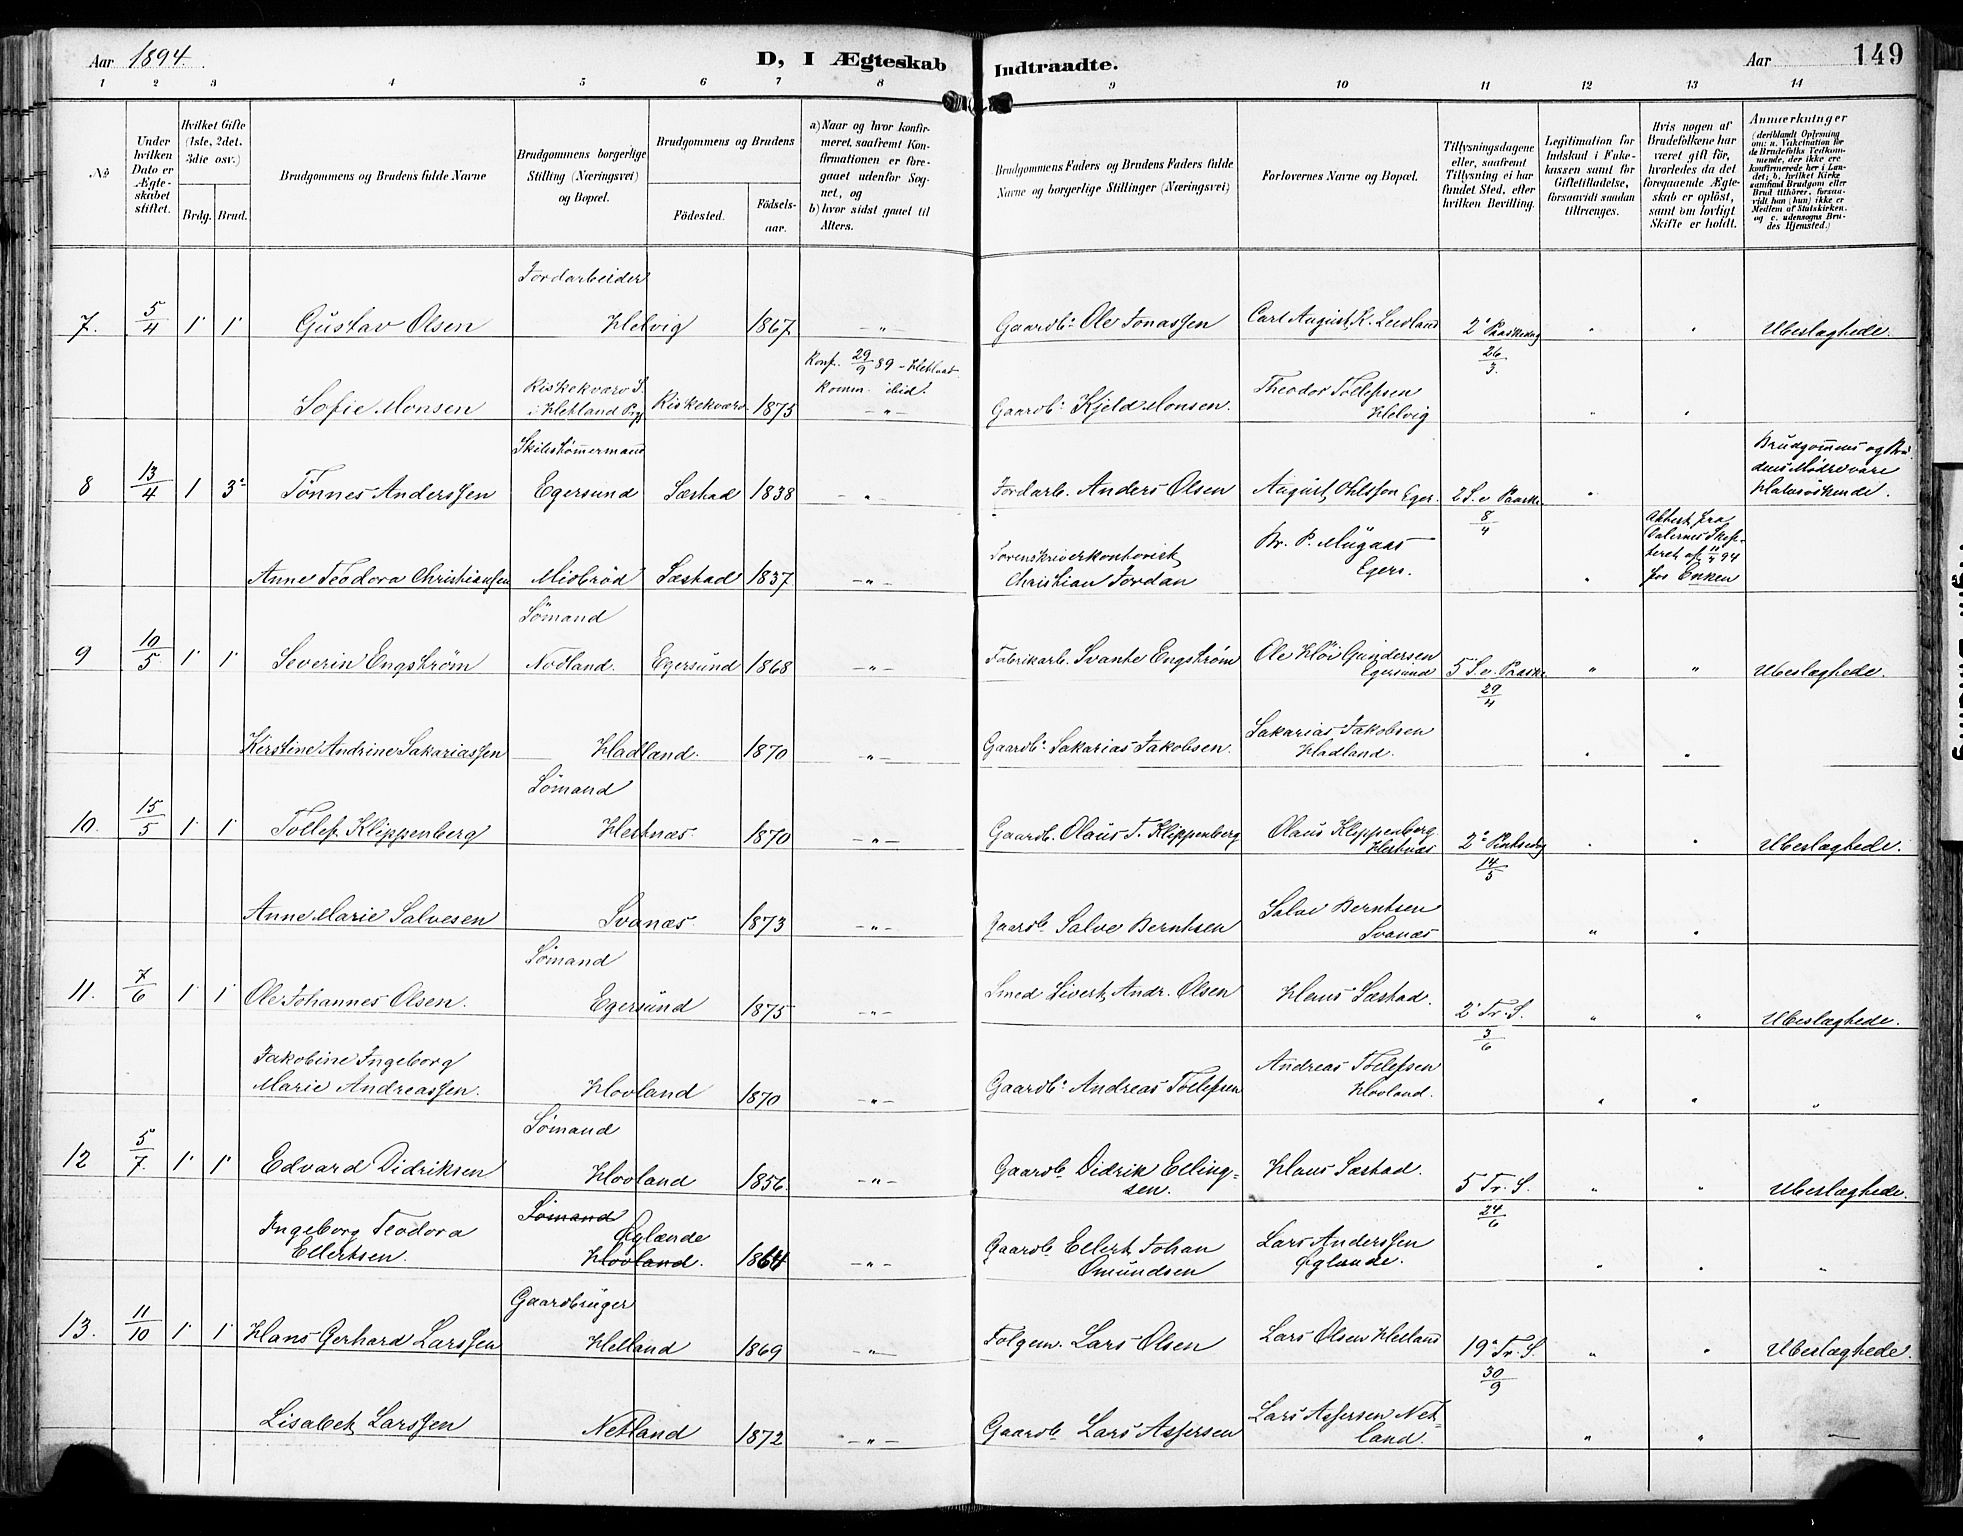 Aar 1894. D, I Ægteskab Indtraadte. Aar 149
1 2 3 4 5 6 7 8 9 10 11 12 13 14
No
Under hvilken Dato er Ægteskabet stiftet.
Hvilket Gifte (1ste, 2det, 3die osv.)
Brdg. Brud.
Brudgommens og Brudens fulde Navne
Brudgommens borgerlige Stilling (Næringsvei) og Bopæl.
Brudgommens og Brudens
Fødested. Fødsels-aar.
a) Naar og hvor konfirmeret, saafremt Konfirmationen er foregaaet udenfor Sognet, og
b) hvor sidst gaaet til Alters.
Brudgommens Faders og Brudens Faders fulde Navne og borgerlige Stillinger (Næringsvei)
Forlovernes Navne og Bopæl.
Tillysningsdagene eller, saafremt Tillysning ei har fundet Sted, efter hvilken Bevilling.
Legitimation for Indskud i Enkekassen samt for Giftetilladelse, forsaavidt saadan tiltrænges.
Hvis nogen af Brudefolkene har været gift før, hvorledes da det foregaaende Ægteskab er opløst, samt om lovligt Skifte er holdt.
Anmerkninger (deriblandt Oplysning om: a. Vakcination for de Brudefolks Vedkommende, der ikke ere konfirmerede her i Landet; b. hvilket Kirkesamfund Brudgom eller Brud tilhører, forsaavidt han (hun) ikke er Medlem af Statskirken, og c. udensogns Brudes Hjemsted.)
Jordarbeider
7. 5/4 1 1 Gustav Olsen Helvig 1867 -"- Gaardbr. Ole Jonassen Carl August K. Leidland 2' Paaskedag 26/3 " " Ubeslægtede.
Konf. 29/9 89 - Hetland
Komm. ibid.
Sofie Monsen Kiskekværv S. i Hetland Prgj. Kiskekværv 1875 -"- Gaardbr. Kjeld Monsen. Theodor Tollefsen Helvig " "
Skibstømmermand
8 13/4 1 3' Tønnes Anderssen Egersund Sæstad 1838 -"- Jordarb. Anders Olsen August Ohlsson Eger. 2 S. e. Paaske 8/4 " Brudgommens og Brudens Mødre vare Halvsøskende.
Anne Teodora Christiansen Midbrød Sæstad 1837 -"- Sorenskriverkontorist Christian Jordan Br. P. Mügaas Egers. " Attest fra Dalernes Skifteret af 11/4 94 for Enken
Sømand
9 10/5 1 1 Severin Engstrøm Nodland. Egersund 1868 -"- Fabrikarb. Svante Engstrøm Ole Høi Gundersen Egersund 5 S. e. Paaske 29/4 " " Ubeslægtede.
Kerstine Andrine Sakariassen Hadland. 1870 -"- Gaardbr. Sakarias Jakobsen. Sakarias Jakobsen Hadland. " "
Sømand
10. 15/5 1 1 Tollef Klippenberg Hestnæs. 1870 -"- Gaardb. Olaus T. Klippenberg Olaus Klippenberg Hestnæs 2' Pintsedag 14/5 " " Ubeslægtede.
Anne Marie Salvesen Svanæs. 1873 -"- Gaardb. Salve Berntsen Salve Berntsen Svanæs " "
Sømand
11. 7/6 1 1 Ole Johannes Olsen. Egersund 1875 -"- Smed Sivert Andr. Olsen Hans Sæstad. 2' Tr. S. 3/6 " " Ubeslægtede.
Jakobine Ingeborg Marie Andreassen. Hovland 1870 -"- Gaardbr. Andreas Tollefsen Andreas Tollefsen Hovland. " " "
Sømand
12 5/7. 1 1 Edvard Didriksen Hovland 1856. -"- Gaardb. Didrik Ellingsen. Hans Sæstad. 5 Tr. S. 24/6 " " Ubeslægtede.
Sømand
Ingeborg Teodora Ellertsen. Øglænde Hovland. 1864 -"- Gaardb. Ellert Johan Omundsen Lars Anderssen Øglænde. " " "
Gaardbruger
13. 11/10 1 1 Hans Gerhard Larssen Hetland 1869 -"- Folgem. Lars Olsen Lars Olsen Hetland 19' Tr. S. 30/9 " " Ubeslægtede.
Lisabet Larssen Netland 1872 -"- Gaardb. Lars Assersen Lars Assersen Netland. " " —